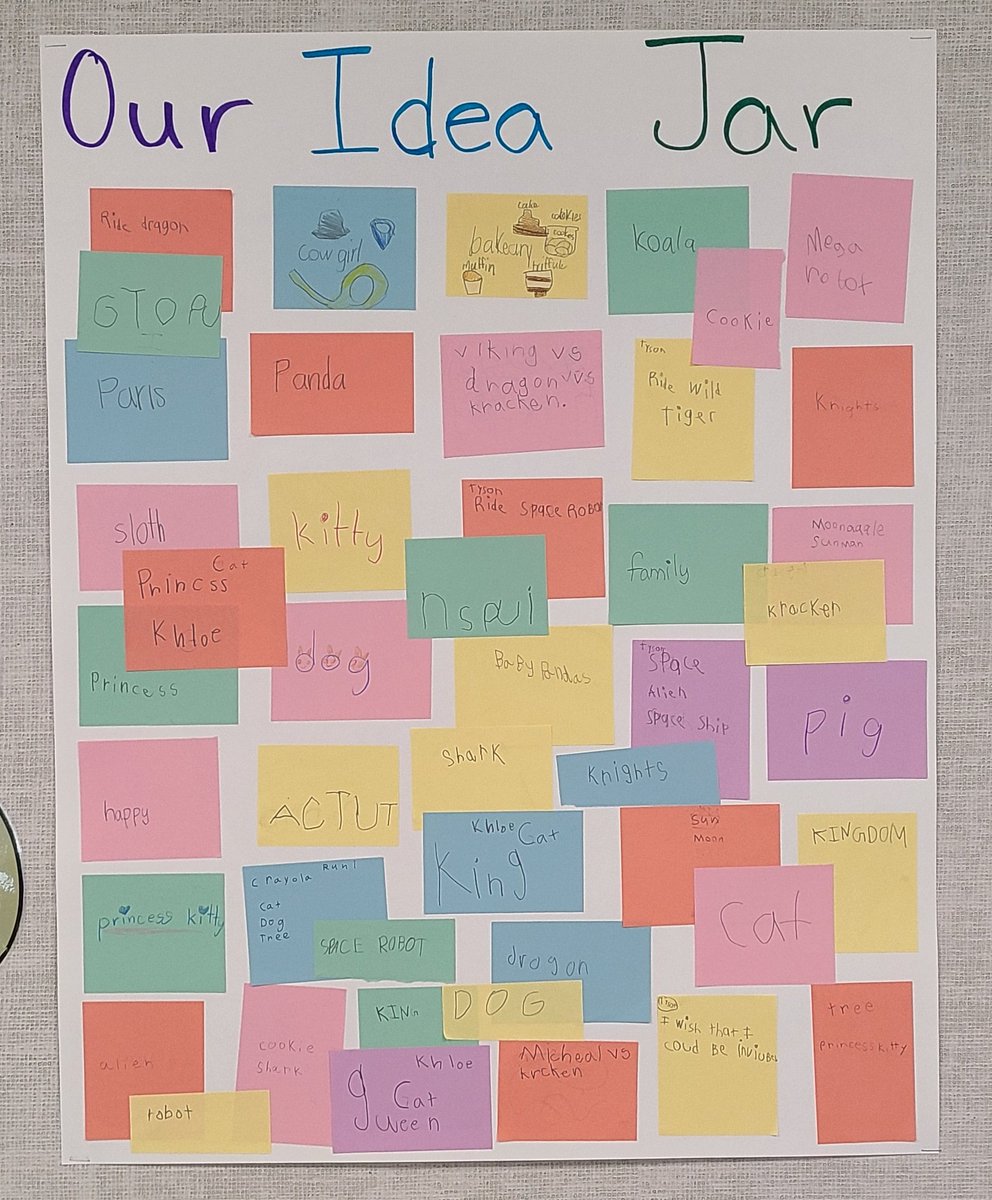 Our Idea Jar
Ride dragon
GTOA
Cow girl
bakeary
cake
cookies
muffin
koala
Cookie
Mega
robot
Paris
Panda
Viking vs
dragon vs
kracken.
Tyson
Ride Wild
Tiger
Knights
sloth
Cat
Princss
Khloe
Princess
kitty
dog
Tyson
Ride Space Robot
nspui
family
Moonaggle
Sunman
kracken
BaBy Pandas
Tyson
Space
Alien
Space Ship
pig
happy
ACTUT
Shark
Knights
Khloe
Cat
King
Sun
Moon
KINGDOM
cat
princess kitty
Crayola Run!
Cat
Dog
Tree
SPACE ROBOT
dragon
alien
robot
cookie
Shark
KIN
DOG
Khloe
Cat
gueen
Micheal vs
krcken
I wish that I
coud Be
tree
princess kitty